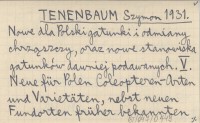 TENENBAUM Szymon 1931.
Nowe dla Polski gatunki i odmiany
chrząszczy, oraz nowe stanowiska
gatunków dawniej podawanych. V.
Neue für Polen Coleopteren-Arten
und Varietäten, nebst neuen
Fundorten früher bekannten